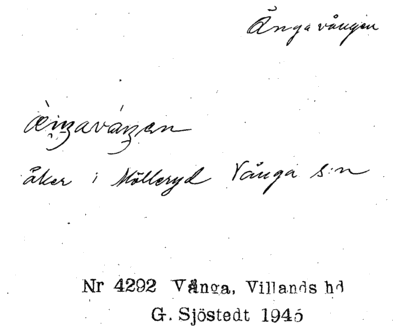 Ängavången
àŋaváŋan
åker i Mölleryd Vånga s:n
Nr 4292 Vånga, Villands hd
G. Sjöstedt 1945